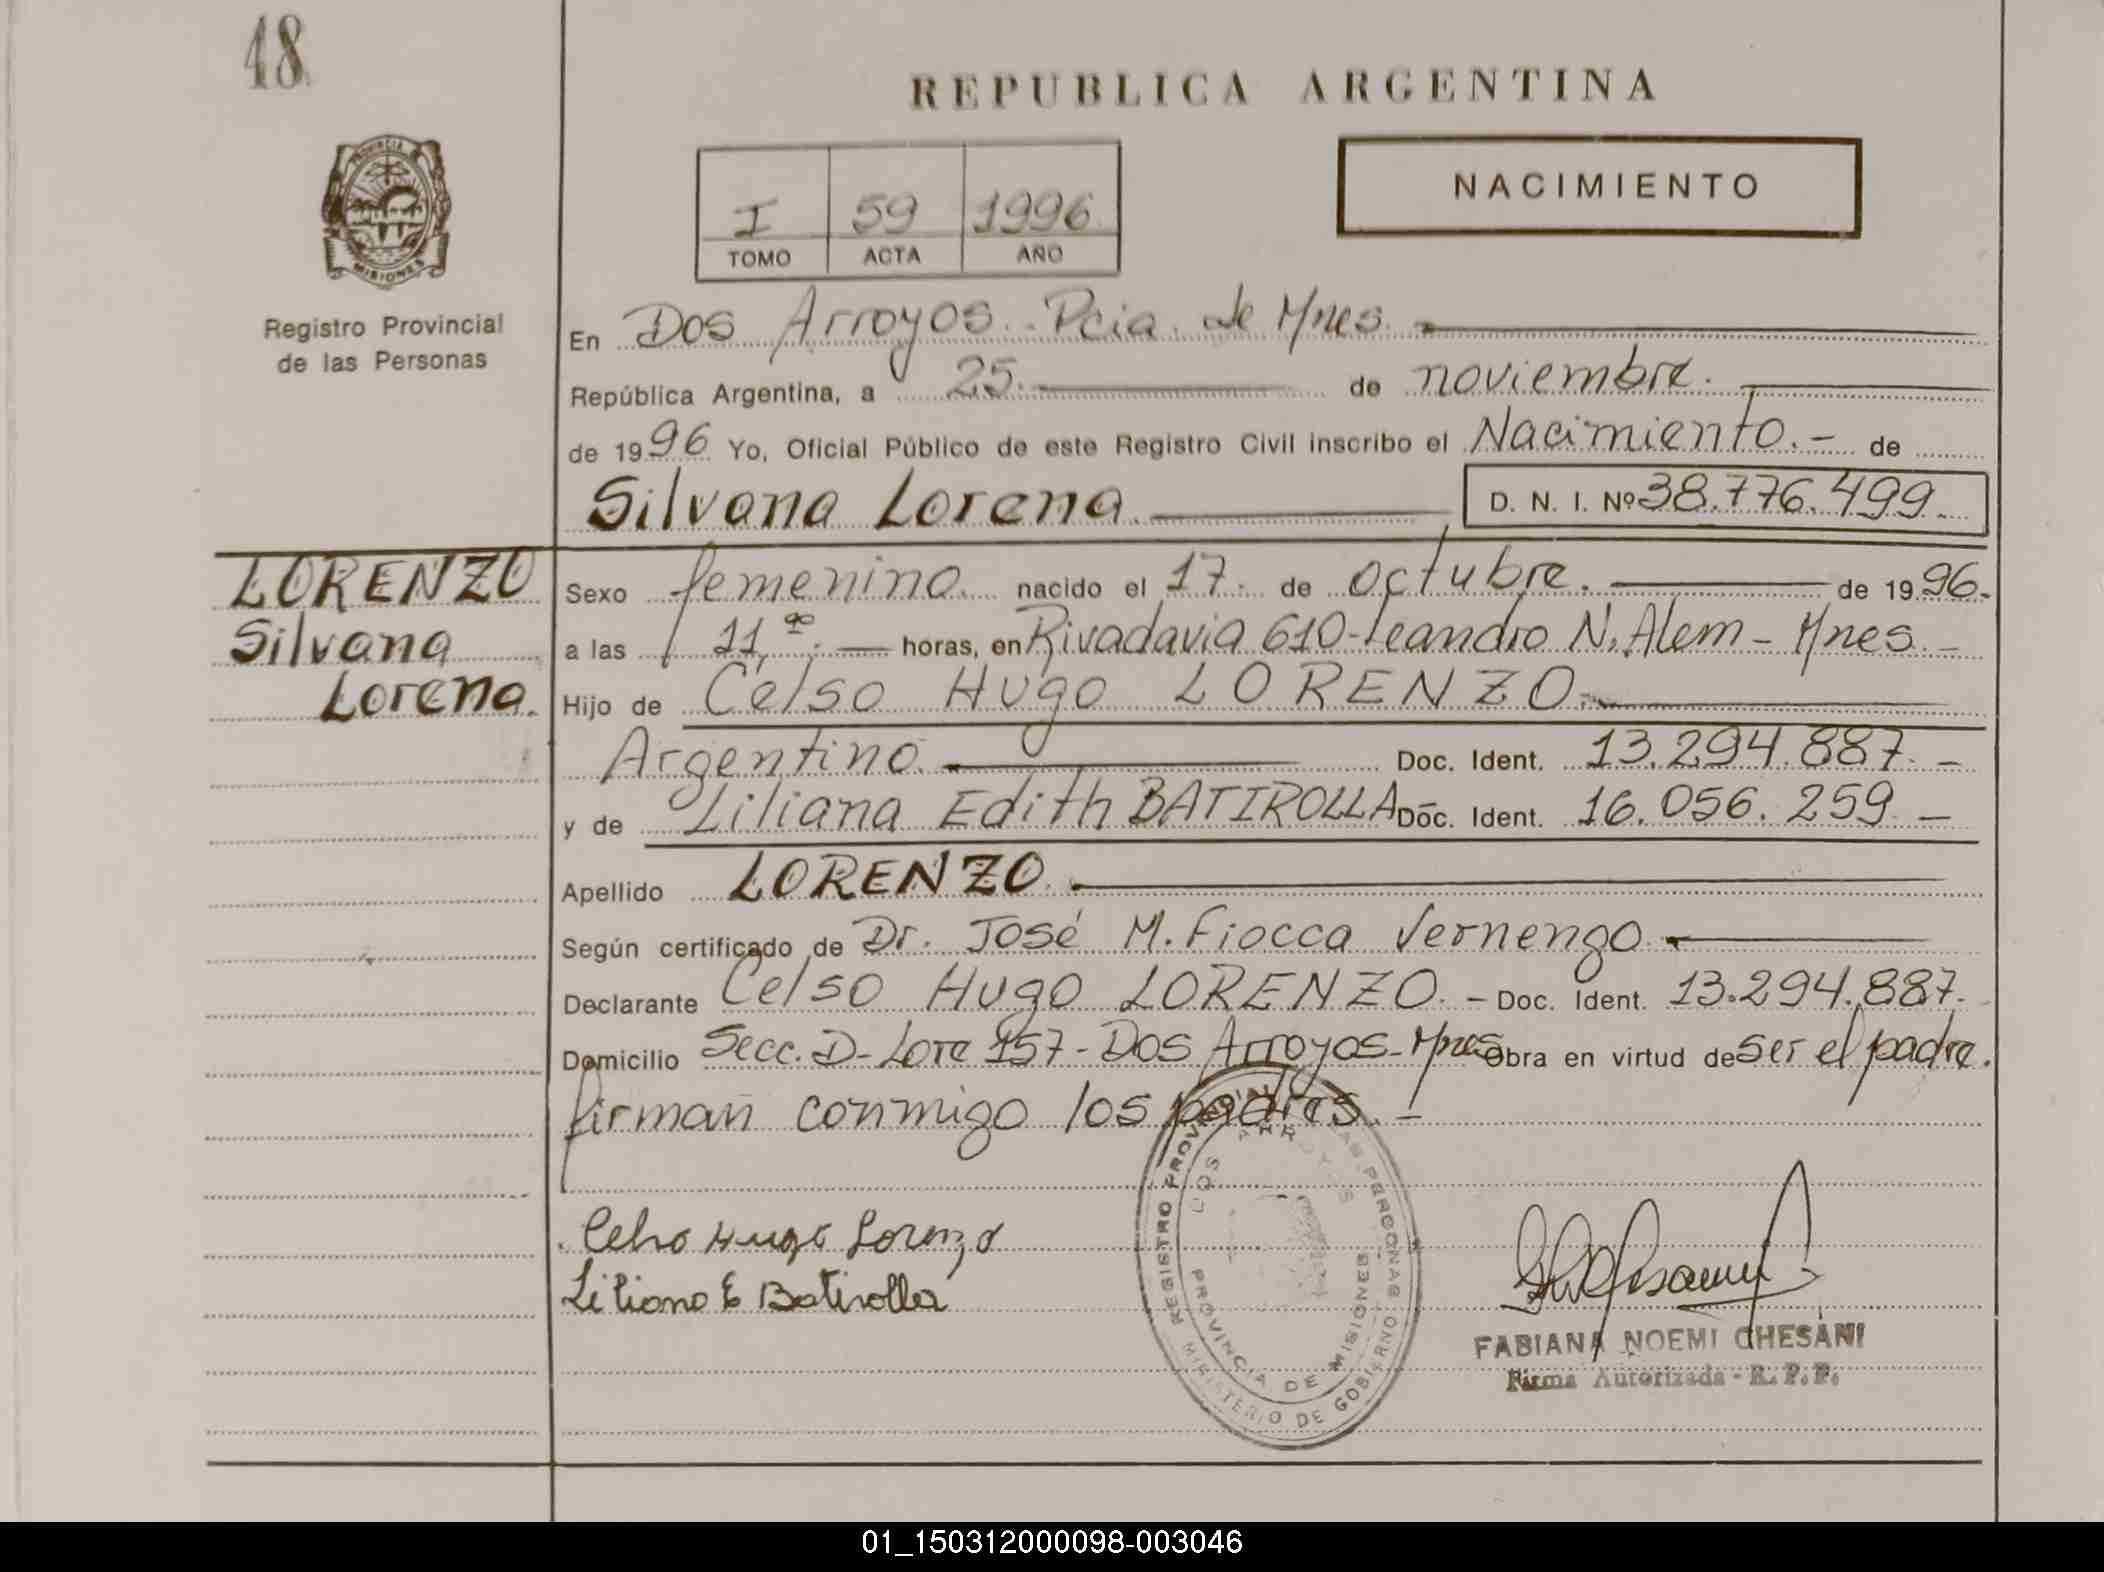 48
REPUBLICA ARGENTINA
PROVINCIA
MISIONES
Registro Provincial
de las Personas
I 59 1996
TOMO ACTA AÑO
NACIMIENTO
En Dos Arroyos. Pcia. de Mnes.
República Argentina, a 25. de noviembre.
de 1996 Yo, Oficial Público de este Registro Civil inscribo el Nacimiento.- de
Silvana Lorena. D. N. I. Nº 38.776.499.
LORENZO
Silvana
Lorena.
Sexo femenino. nacido el 17. de octubre. de 1996.
a las 11,ºº. horas, en Rivadavia 610-Leandro N. Alem - Mnes. -
Hijo de Celso Hugo LORENZO.
Argentino. Doc. Ident. 13.294.887. -
y de Liliana Edith BATIROLLA Doc. Ident. 16.056.259. -
Apellido LORENZO.
Según certificado de Dr. José M. Fiocca Vernengo.
Declarante Celso Hugo LORENZO. - Doc. Ident. 13.294.887.
Domicilio Secc. D- Lote 157- Dos Arroyos- Mnes Obra en virtud de ser el padre.
firman conmigo los padres. -
Celso Hugo Lorenzo
Liliana E Batirolla
REGISTRO PROVINCIAL DE LAS PERSONAS
DOS ARROYOS
PROVINCIA DE MISIONES
MINISTERIO DE GOBIERNO
FABIANA NOEMI CHESANI
Firma Autorizada - R. P. P.
01_150312000098-003046